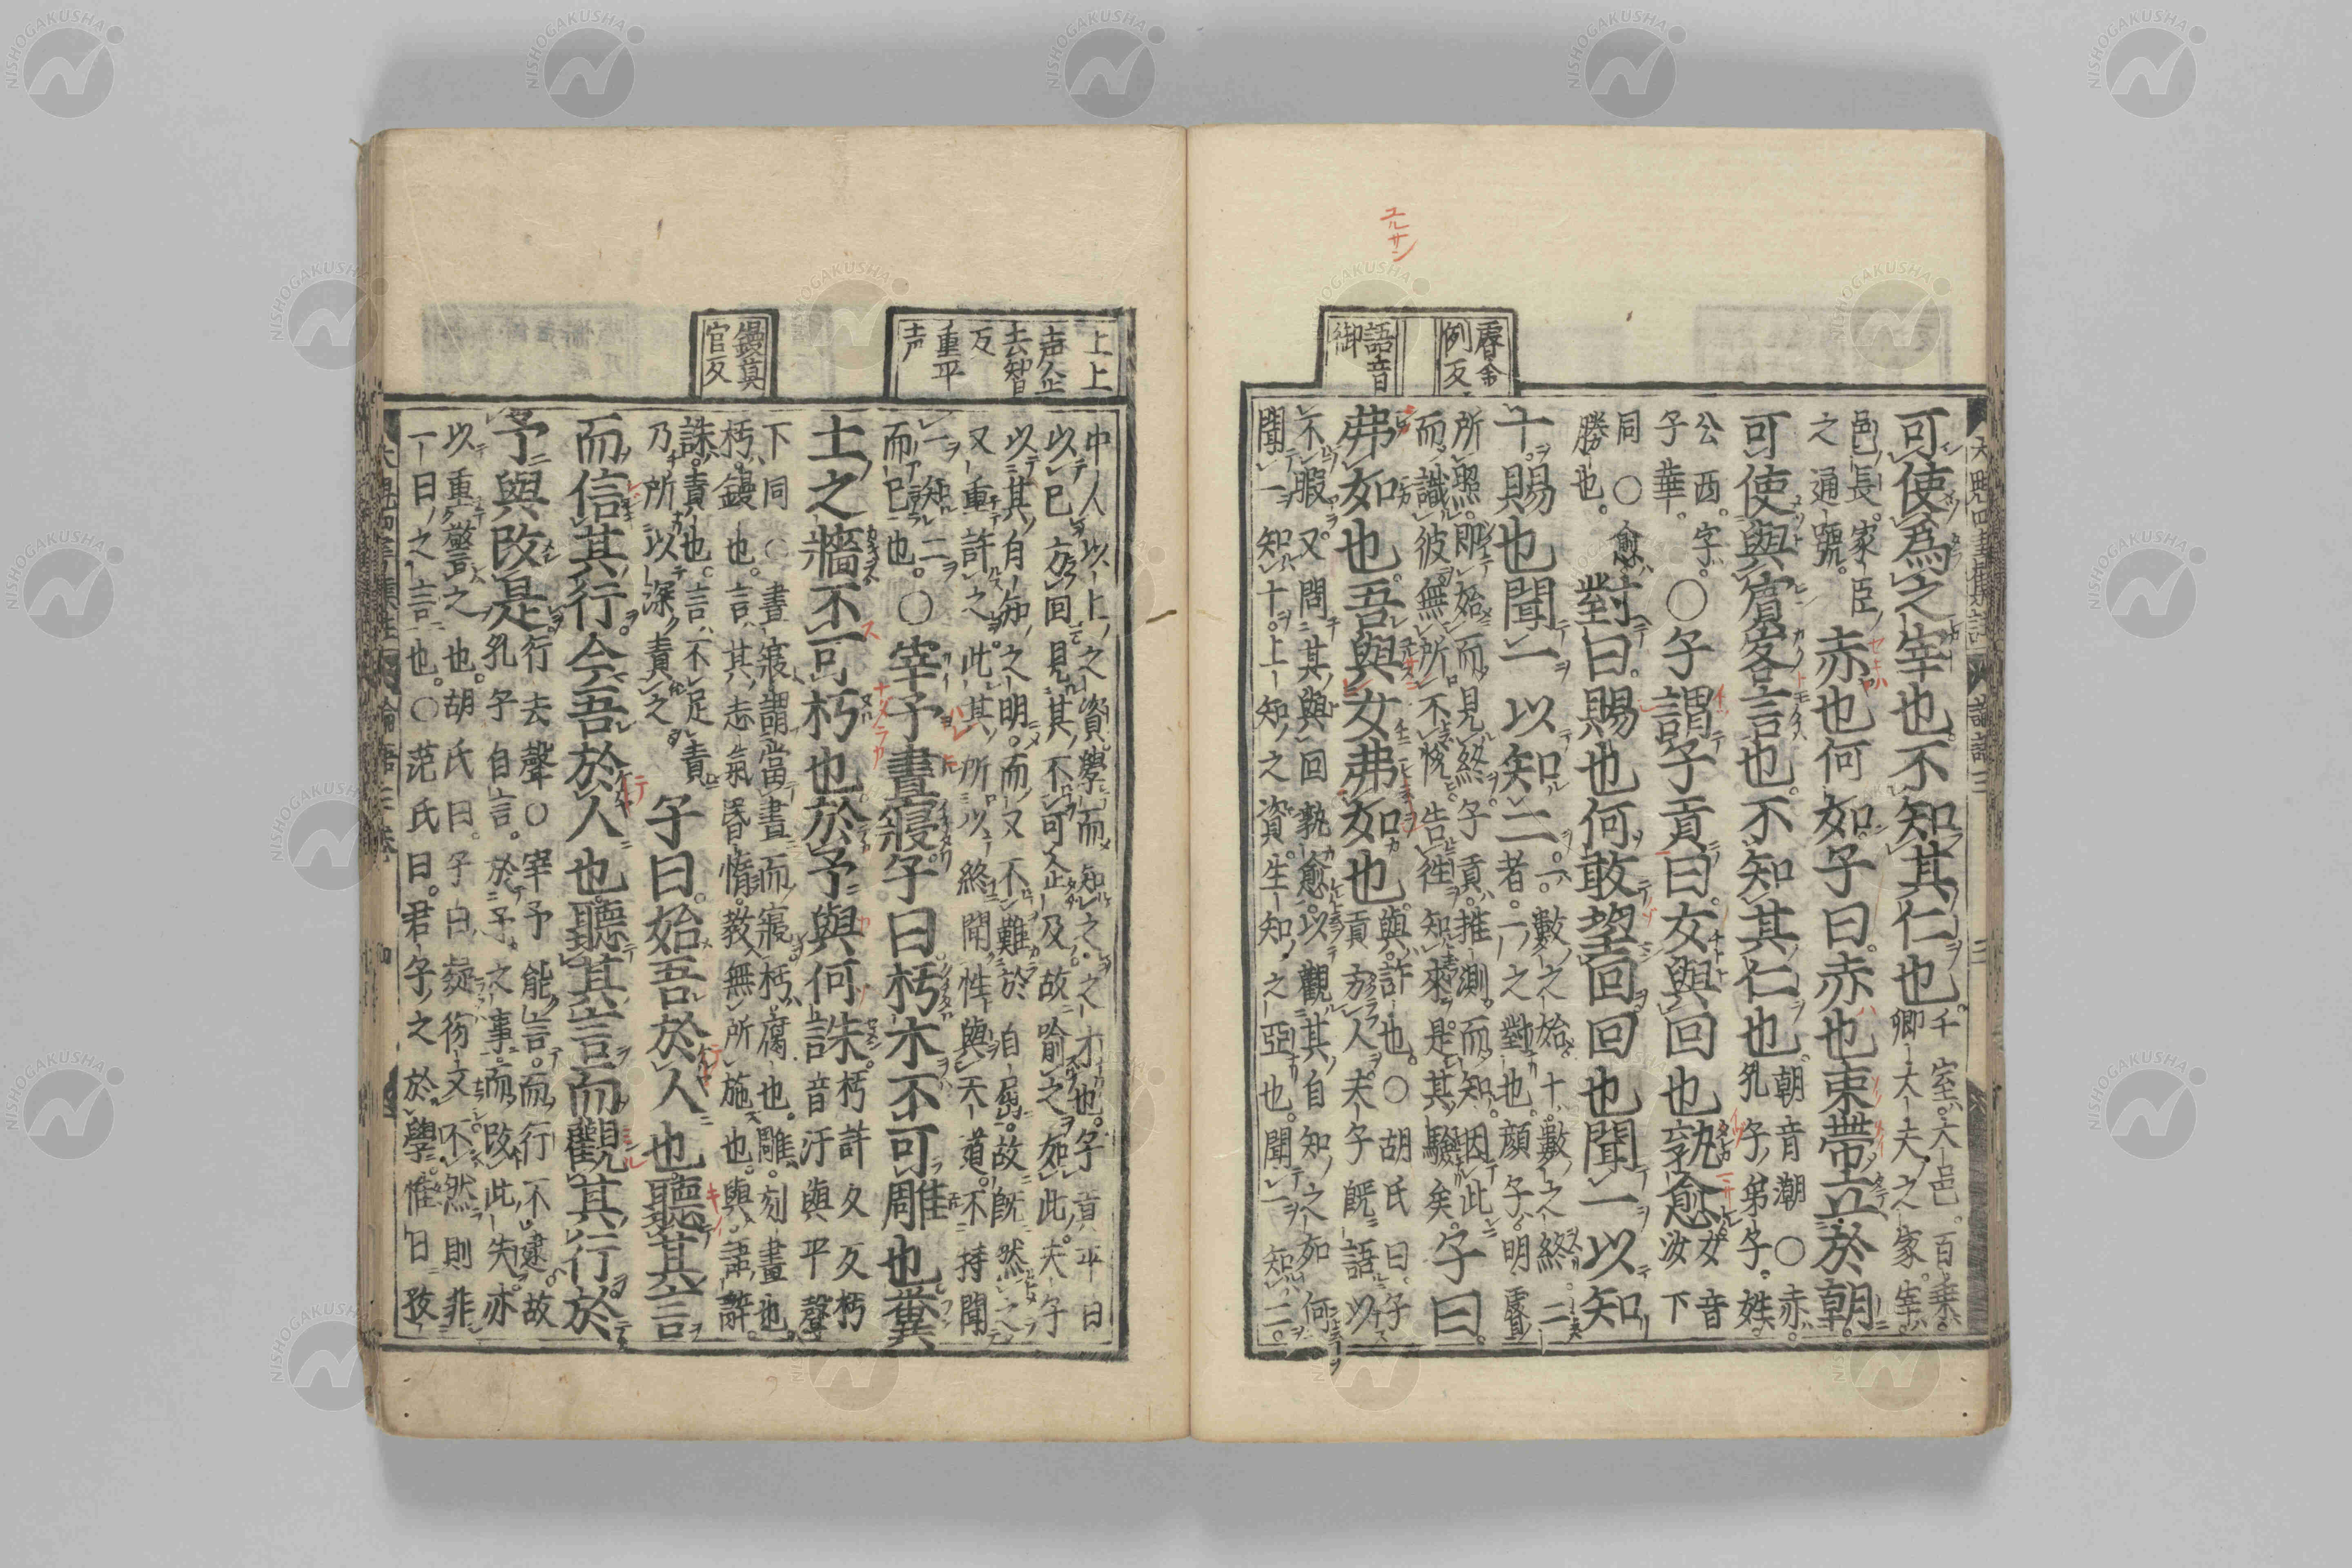 ユルサン
睿余
例反
語音
御
可使爲之宰也不知其仁也。
千室。大邑。百乘。
卿大夫之家。宰。
邑長。家臣
之通號。
赤也何如。子曰。赤也束帶立於朝。
可使與賓客言也。不知其仁也。
朝音潮○赤。
孔子弟子。姓。
公西。字。
子華。
○子謂子貢曰。女與回也孰愈
女音
汝下
同○愈
勝也。
對曰。賜也何敢望回回也聞一以知
十賜也聞一以知二。
一。數之始。十。數之終。二
者。一之對也。顔子。明睿
所照。即始而見終。子貢。推測而知。因此
而識彼無所不悅告徃知來。是其驗矣。
子曰。
弗如也。吾與女弗如也。
與。許也。○胡氏曰。子
貢方人夫子既語以
不暇。又問其與回孰愈。以觀其自知之如何
聞一知十。上知之資。生知之亞也。聞一知二。
上上
声企
去智
反
重平
声
鏝莫
官反
中人以上之資學而知之之才也。子貢平日
以己方回見其不可企及。故喻之如此。夫子
以其自知之明。而又不難於自屈。故既然之
又重許之。此其所以終聞性與天道。不特聞
一知二
而已也。
○宰予晝寢。子曰朽木不可雕也糞
土之牆不可杇也於予與何誅。
朽許久反杇
音汙與平聲
下同○晝寢謂當晝而寢朽。腐也。雕。刻畫也。
杇鏝也。言其志氣昏惰。教無所施也。與。語辭。
誅。責也。言不足責
乃所以深責之
子曰。始吾於人也聽其言
而信其行。今吾於人也聽其言而觀其行於
予與改是
行去聲○宰予能言。而行不逮。故
孔子自言。於予之事。而改此失。亦
以重警之也。胡氏曰。子曰疑衍文不然則非
一日之言也。○范氏曰。君子之於學。惟日孜
論語三卷
NISHOGAKUSHA